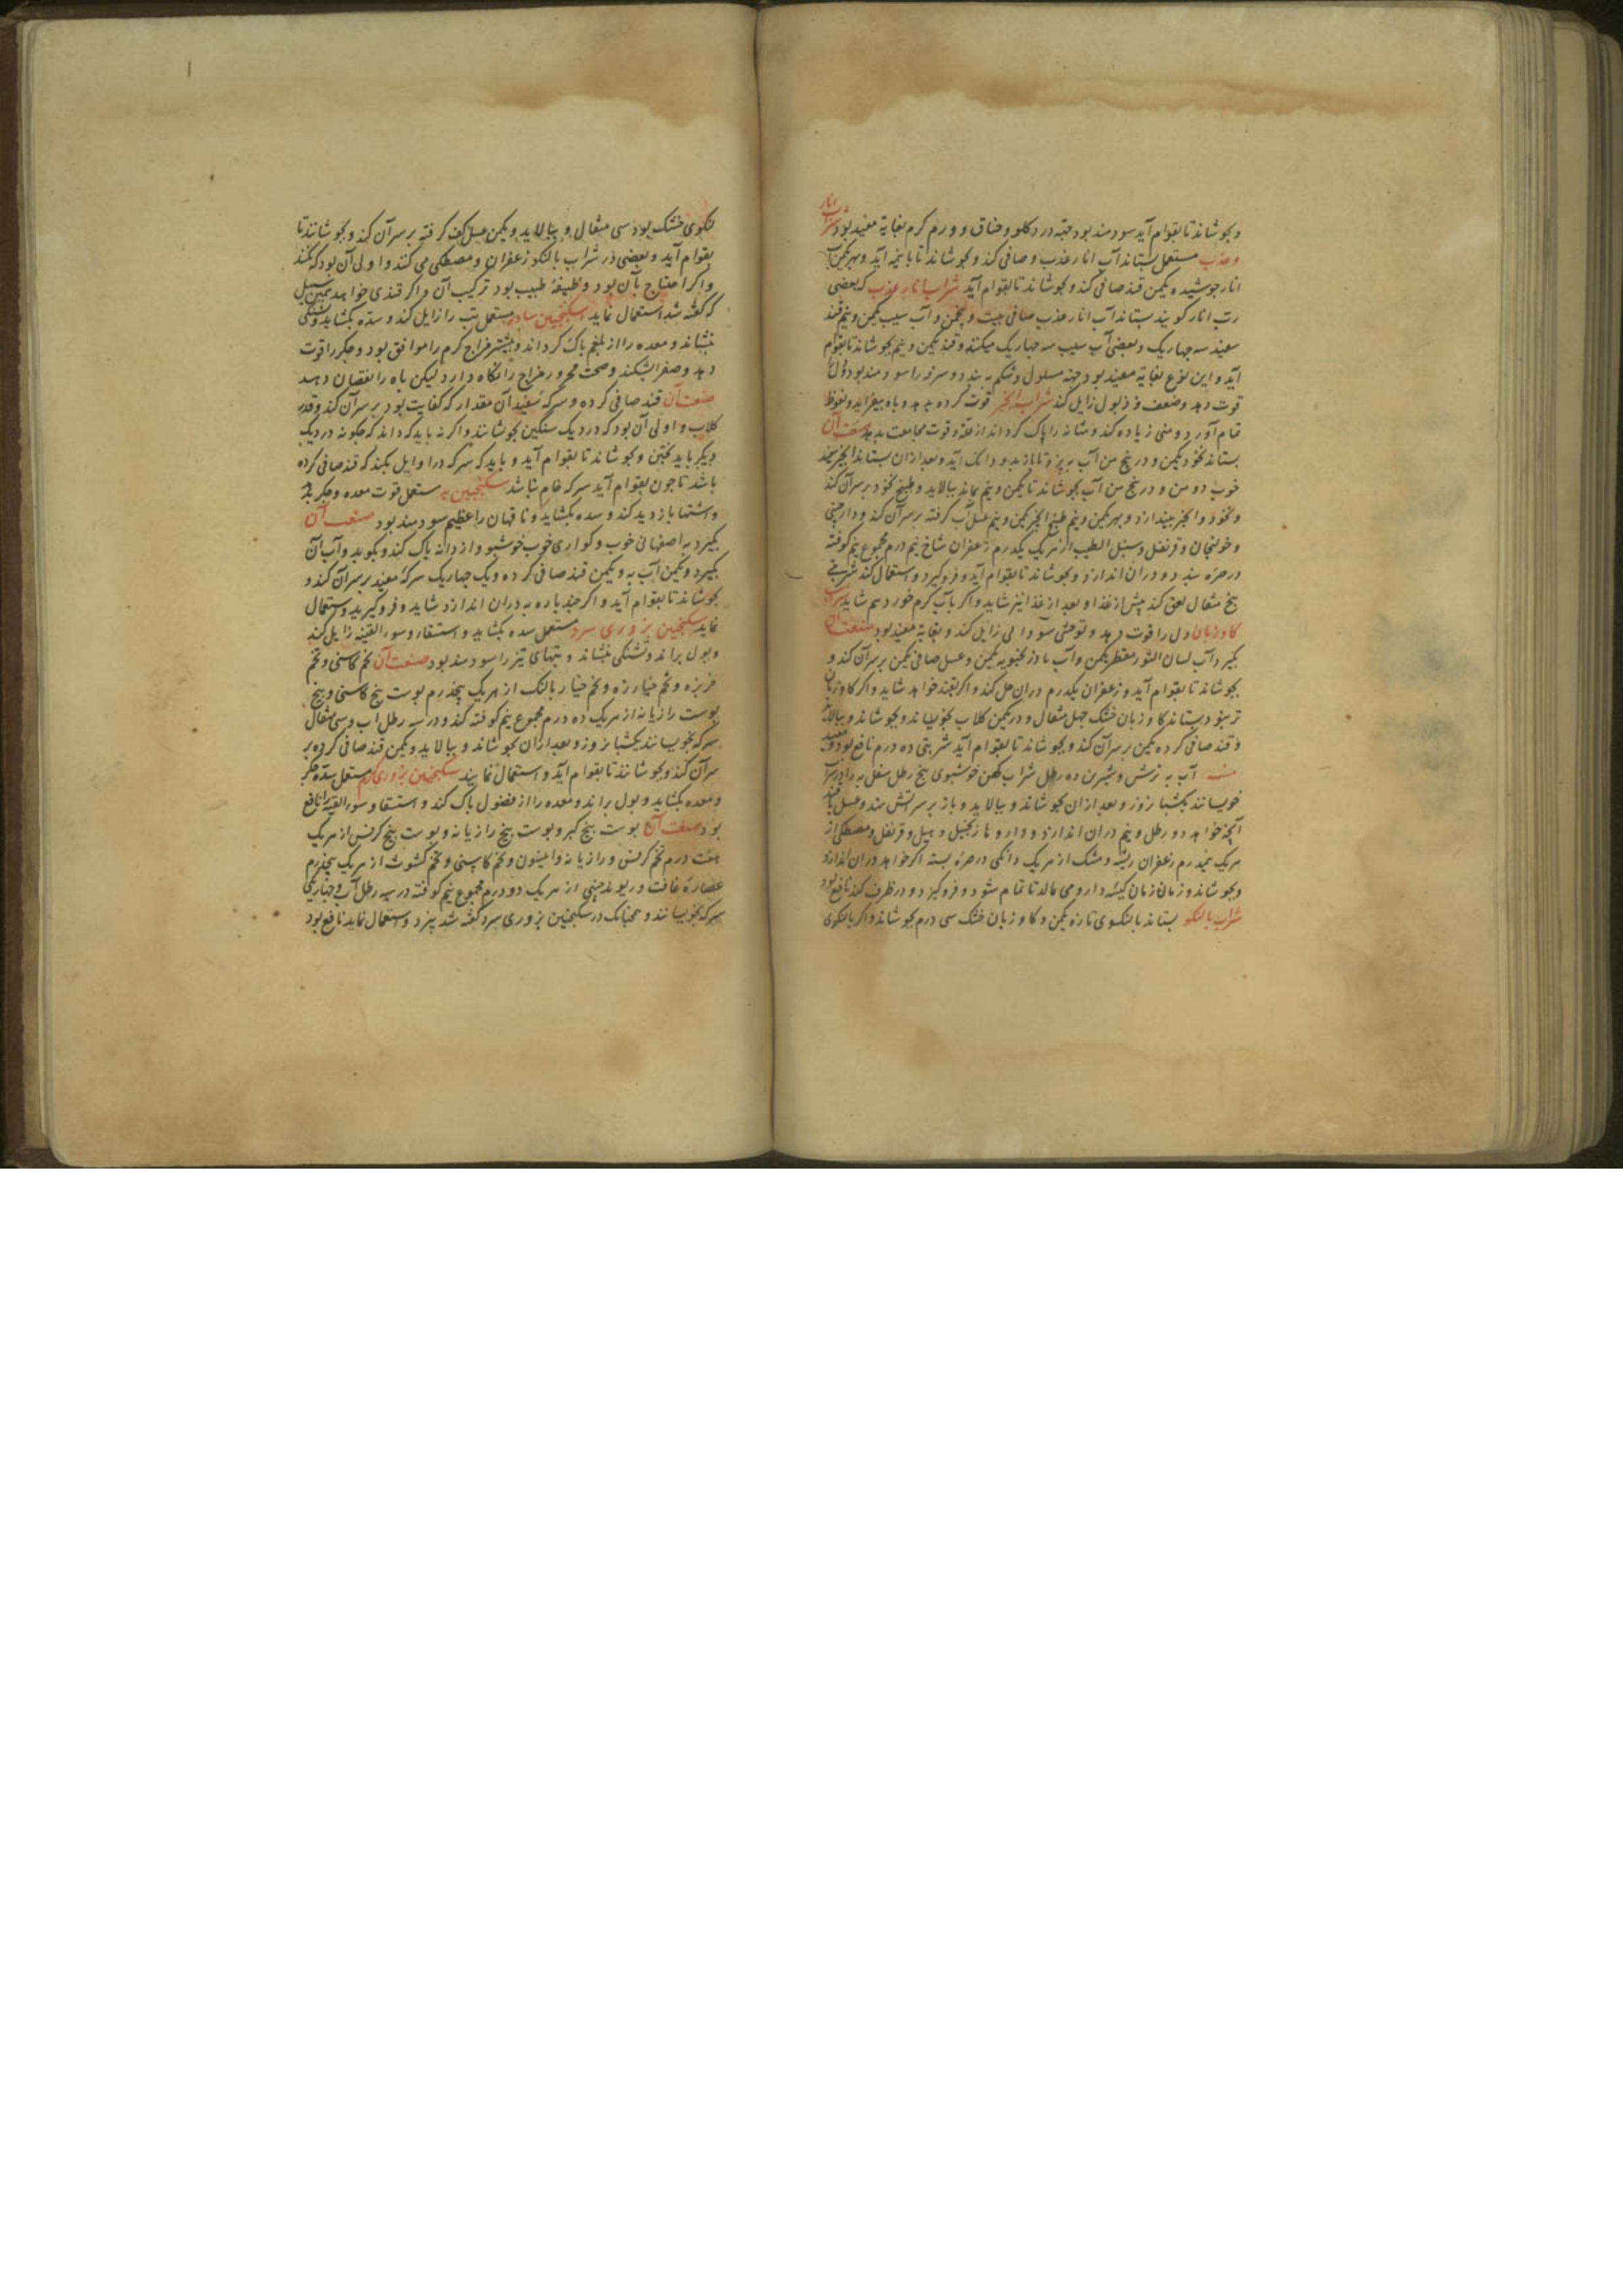 و بجوشاند تا بقوام آید سودمند بود جهته درد کلو و خناق و ورم کرم بغایة مفید بود شراب انار
و عذب مستعمل بستاند آب انار عذب و صافی کند و بجوشاند تا با نیمه آید و بهر یکمن آب
انار جوشیده یکمن قند صافی کند و بجوشاند تا بقوام آید شراب انار عذب که بعضی
رب انار کویند بستاند آب انار عذب صافی بیست و پنجمن و آب سیب یکمن و نیم قند
سفید سه جهاریک و بعضی آب سیب سه جهاریک میکنند و قند یکمن و نیم بجوشاند تا بقوام
آید و این نوع بغایة مفید بود جهته مسلول و شکم به بندد و سرفه را سودمند بود و دل را
قوت دهد و ضعف و ذبول زایل کند شراب انجیر قوت کرده بدهد و باه بیفزاید و نعوظ
تمام آورد و منی زیاده کند و مثانه را پاک کرداند از علة و قوت مجامعت بدهد صنعت آن
بستاند نخود یکمن و در پنج من آب بپزد تا با زیدو دانک آید و بعد از ان بستاند انجیر سفید
خوب دو من و در پنج من آب بجوشاند تا یکمن و نیم بماند ببالاید و طبیخ نخود بر سر آن کند
و نخود و انجیر بیندازد و بهر یکمن و نیم طبیخ انجیر یکمن و نیم عسل آب کرفته بر سر آن کند و دارچینی
و خولنجان و قرنفل و سنبل الطیب از هر یک یکدرم زعفران شاخ نیم درم مجموع نیم کوفته
در صره بندد و در ان اندازد و بجوشاند تا بقوام آید و فرو کیرد و استعمال کند شربتی
پنج مثقال لعق کند پیش از غذا و بعد از غذا نیز شاید و اکر بآب کرم خورد هم شاید شراب
کاوزبان دل را قوت دهد و توحش سودا لی زایل کند و بغایة مفید بود صنعت آن
بکیرد آب لسان الثور مقطر یکمن و آب بادرنجبویه یکمن و عسل صافی یکمن بر سر آن کند و
بجوشاند تا بقوام آید و زعفران یکدرم در ان حل کند و اکر بقند خواهد شاید و اکر کاوزبان
تر نبود بستاند کاوزبان خشک جهل مثقال و در یکمن کلاب بخویساند و بجوشاند و ببالاید
و قند صافی کرده یکمن بر سر آن کند و بجوشاند تا بقوام آید شربتی ده درم نافع بود و مفید
آب به ترش و شیرین ده رطل شراب کهن خوشبوی پنج رطل سفل به را در شراب
خویسانند یکشبانروز و بعد از ان بجوشاند و ببالاید و باز بر سر آتش نهند و عسل یا قند
آنچه خواهد دو رطل و نیم در ان اندازد و داروها زنجبیل و هیل و قرنفل و مصطکی از
هر یک نیمدرم زعفران ریشه و مشک از هر یک دانکی در صره بسته اکر خواهد در ان اندازد
و بجوشاند و زمان زمان کیسه دارو می مالد تا تمام شود و فرو کیرد و در ظرف کند نافع بود
شراب بالنکو بستاند بالنکوی تازه یکمن و کاوزبان خشک سی درم بجوشاند و اکر بالنکوی
نکوی خشک بود سی مثقال و ببالاید و یکمن عسل کف کرفته بر سر آن کند و بجوشانند تا
بقوام آید و بعضی در شراب بالنکو زعفران و مصطکی می کنند و اولی آن بود که نکنند
و اکر احتیاج بآن بود وظیفهٔ طبیب بود ترکیب آن و اکر قندی خواهد بهمین سبیل
که کفته شد استعمال نماید اسکنجبین ساده مستعمل تب را زایل کند و سده بکشاید و تشنکی
بنشاند و معده را از بلغم پاک کرداند و بیشتر مزاج کرم را موافق بود و جکر را قوت
دهد و صفرا بشکند و صحت محرور مزاج را نکاه دارد لیکن باه را نقصان دهد
صنعت آن قند صافی کرده و سرکه سفید آن مقدار که کفایت بود بر سر آن کند و قدر
کلاب و اولی آن بود که در دیک سنکین بجوشانند و اکر نه باید که داند که جکونه در دیک
دیکر باید پختن و بجوشاند تا بقوام آید و باید که سرکه در اوایل بکند که قند صافی کرده
باشد تا چون بقوام آید سرکه خام نباشد سکنجبین به مستعمل قوت معده و جکر بدهد
و اشتها بازدید کند و سده بکشاید و ناقهان را عظیم سودمند بود صنعت آن
بکیرد به اصفهانی خوب و کواری خوب خوشبو و از دانه پاک کند و بکوبد و آب آن
بکیرد و یکمن آب به و یکمن قند صافی کرده و یک جهاریک سرکهٔ سفید بر سر آن کند و
بجوشاند تا بقوام آید و اکر چند پاره به در ان اندازد شاید و فرو کیرید و استعمال
نماید سکنجبین بزوری سرد مستعمل سده بکشاید و استسقا و سوء القنیه زایل کند
و بول براند و تشنکی بنشاند و تبهای تیز را سودمند بود صنعت آن تخم کاسنی و تخم
خربزه و تخم خیارزه و تخم خیار بالنک از هر یک پنجدرم پوست پنج کاسنی و بیخ
پوست رازیانه از هر یک ده درم مجموع نیم کوفته کند و در سه رطل آب و سی مثقال
سرکه بخویسانند یکشبانروز و بعد از ان بجوشاند و ببالاید و یکمن قند صافی کرده بر
سر آن کند و بجوشانند تا بقوام آید و استعمال نمایند سکنجبین بزوری کرم مستعمل سده جکر
و معده بکشاید و بول براند و معده را از فضول پاک کند و استسقا و سوء القنیه را نافع
بود صنعت آن پوست بیخ کبر و پوست بیخ رازیانه و پوست بیخ کرفس از هر یک
هفت درم تخم کرفس و رازیانه و انیسون و تخم کاسنی و تخم کشوث از هر یک پنجدرم
عصارهٔ غافت و ریوند چینی از هر یک دو درم مجموع نیم کوفته در سه رطل آب و جهاریکی
سرکه بخویسانند و همچنانک در سکنجبین بزوری سرد کفته شد بپزد و استعمال نماید نافع بود